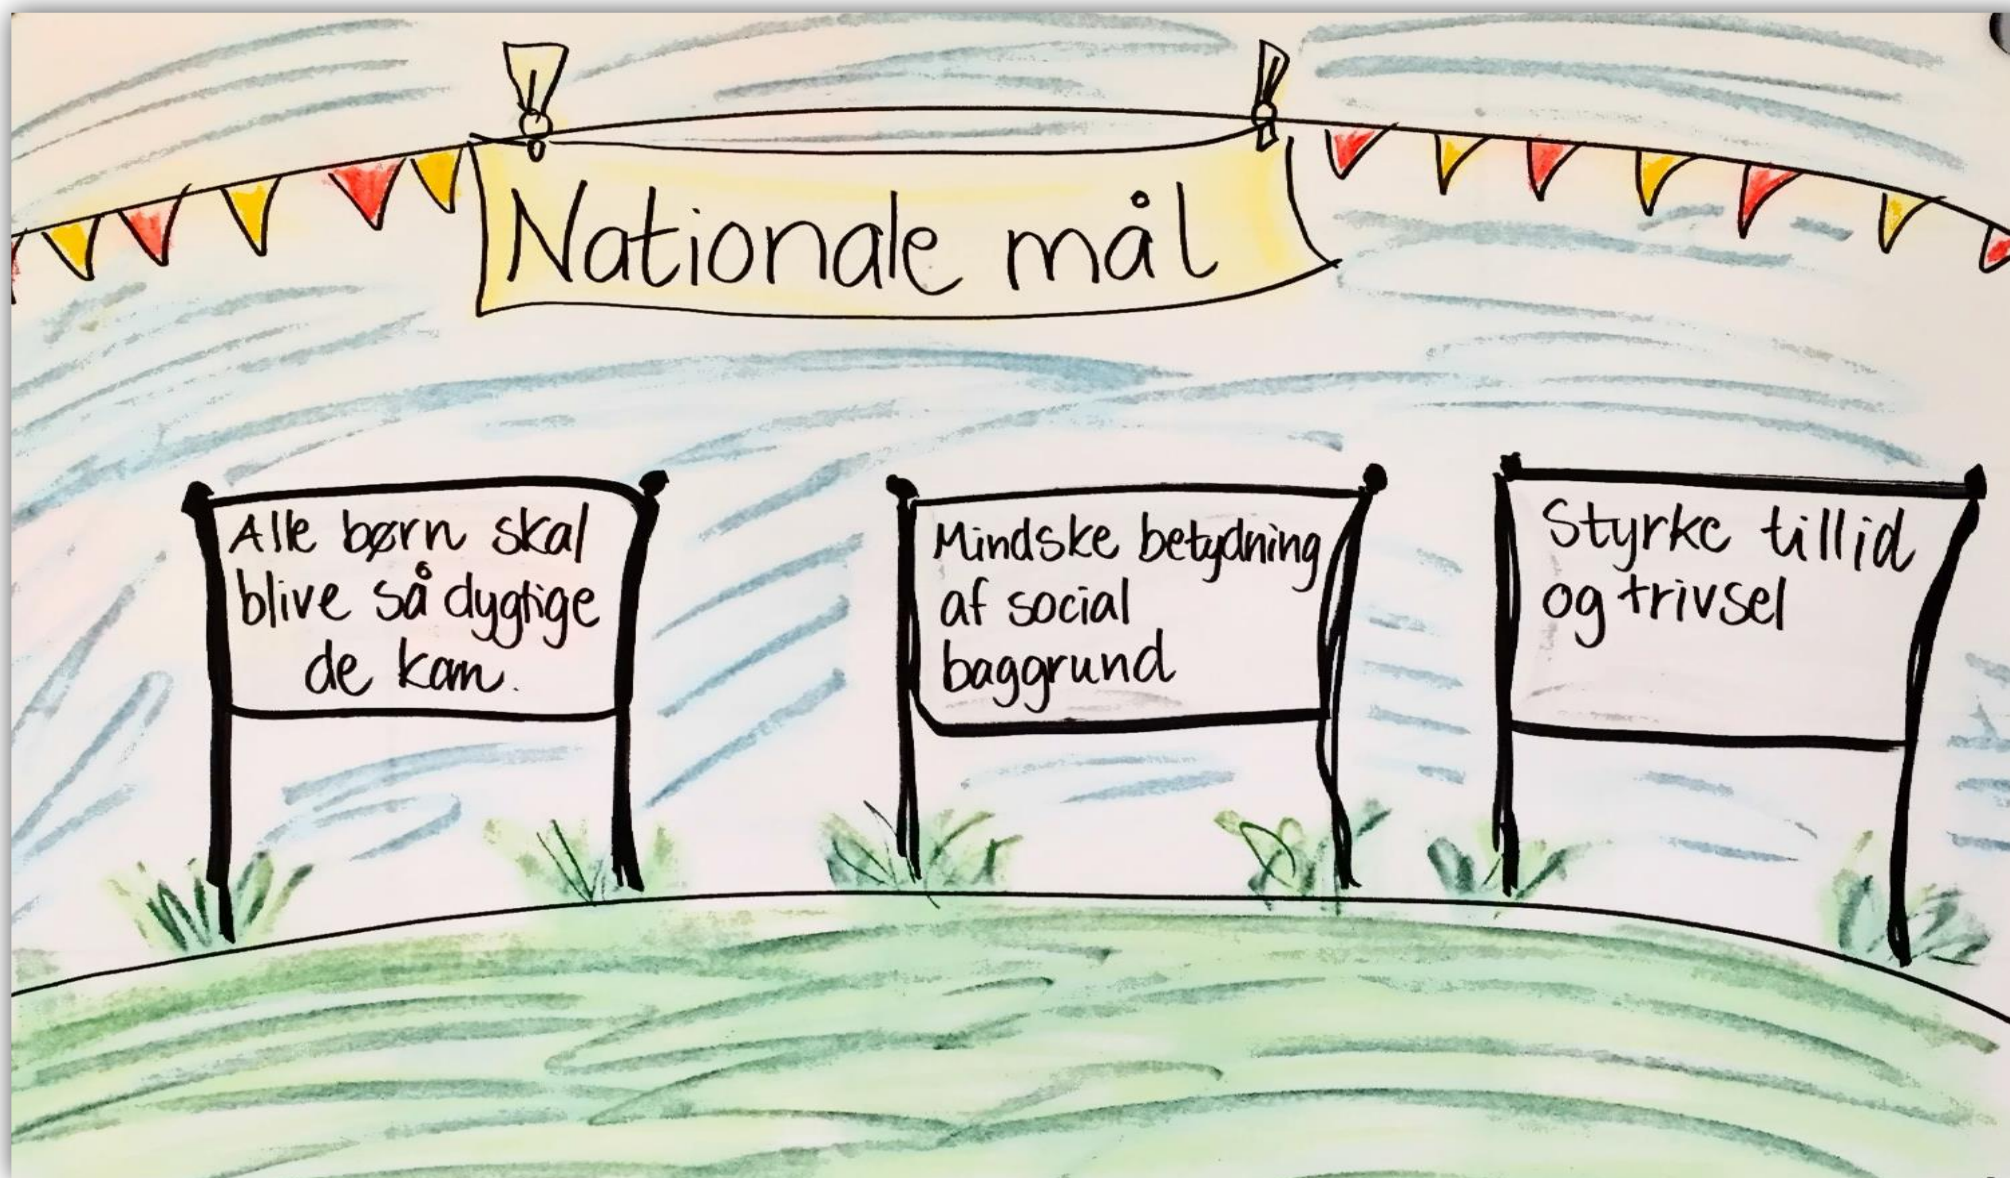 Nationale mål
Alle børn skal
blive så dygtige
de kan.
Mindske betydning
af social
baggrund
Styrke tillid
og trivsel